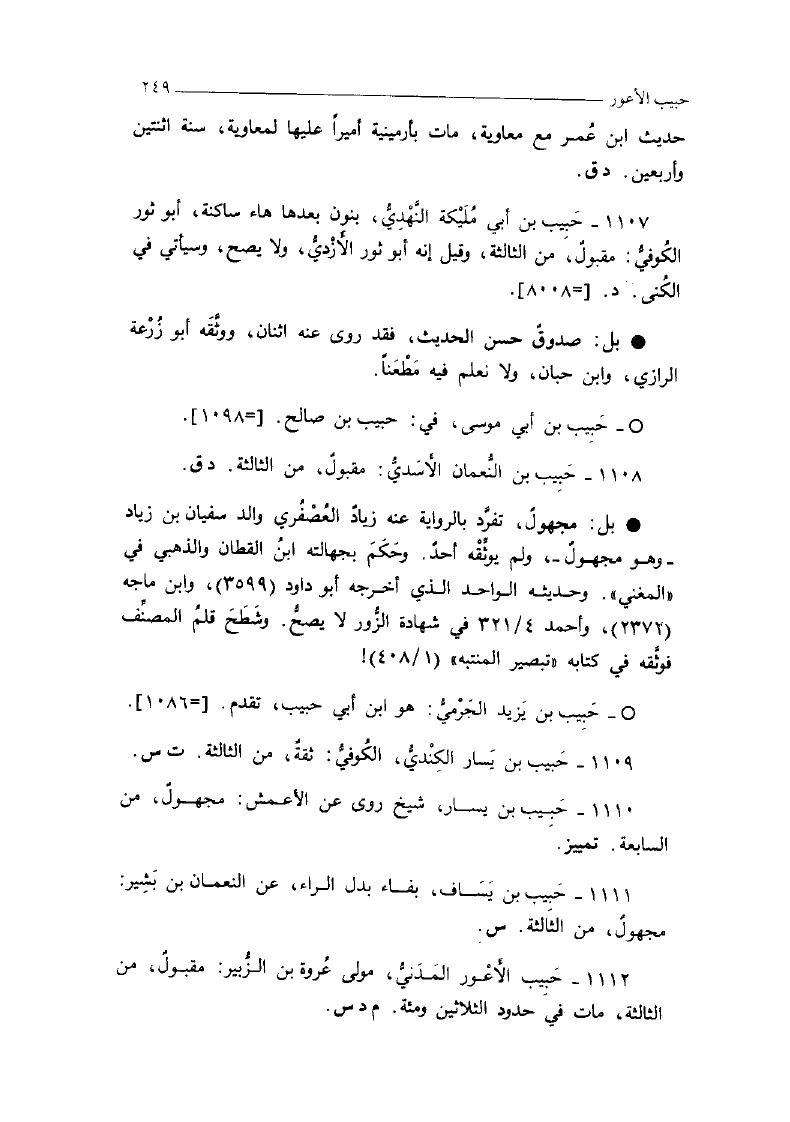 حبيب الأعور ٢٤٩
حديث ابن عُمـر مع معاوية، مات بأرمينية أميراً عليها لمعاوية، سنة اثنتين
وأربعين. د ق.
١١٠٧ ـ حَبِيب بن أبي مُلَيْكة النَّهْدِيُّ، بنون بعدها هاء ساكنة، أبو ثور
الكُوفيُّ: مقبولٌ، من الثالثة، وقيل إنه أبو ثور الأَزْديُّ، ولا يصح، وسيأتي في
الكُنى. د. [=٨٠٠٨].
● بل: صدوقٌ حسن الحديث، فقد روى عنه اثنان، ووثَّقَه أبو زُرْعة
الرازي، وابن حبان، ولا نعلم فيه مَطْعَناً.
○ ـ حَبِيب بن أبي موسى، في: حبيب بن صالح. [=١٠٩٨].
١١٠٨ ـ حَبِيب بن النُّعمان الأَسَديُّ: مقبولٌ، من الثالثة. د ق.
● بل: مجهولٌ، تفرَّد بالرواية عنه زيادٌ العُصْفُري والد سفيان بن زياد
ـ وهـو مجهـولٌ ـ، ولم يوثِّقْه أحدٌ. وحَكَمَ بجهالته ابنُ القطان والذهبي في
«المغني». وحديثـه الـواحـد الـذي أخـرجه أبو داود (٣٥٩٩)، وابن ماجه
(٢٣٧٢)، وأحمد ٣٢١/٤ في شهادة الزُّور لا يصحُّ. وشَطَحَ قلمُ المصنِّف
فوثَّقه في كتابه «تبصير المنتبه» (٤٠٨/١)!
○ ـ حَبِيب بن يَزيد الجَرْميُّ: هو ابن أبي حبيب، تقدم. [=١٠٨٦].
١١٠٩ ـ حَبِيب بن يَسار الكِنْديُّ، الكُوفيُّ: ثقةٌ، من الثالثة. ت س.
١١١٠ ـ حَبِـيب بن يسـار، شيخ روى عن الأعـمش: مجهـولٌ، من
السابعة. تمييز.
١١١١ ـ حَبِيب بن يَسَـاف، بفـاء بدل الـراء، عن النعمـان بن بَشِير:
مجهولٌ، من الثالثة. س.
١١١٢ ـ حَبِيب الأَعْـور المَـدَنيُّ، مولى عُروة بن الـزُّبير: مقبـولٌ، من
الثالثة، مات في حدود الثلاثين ومئة. م د س.